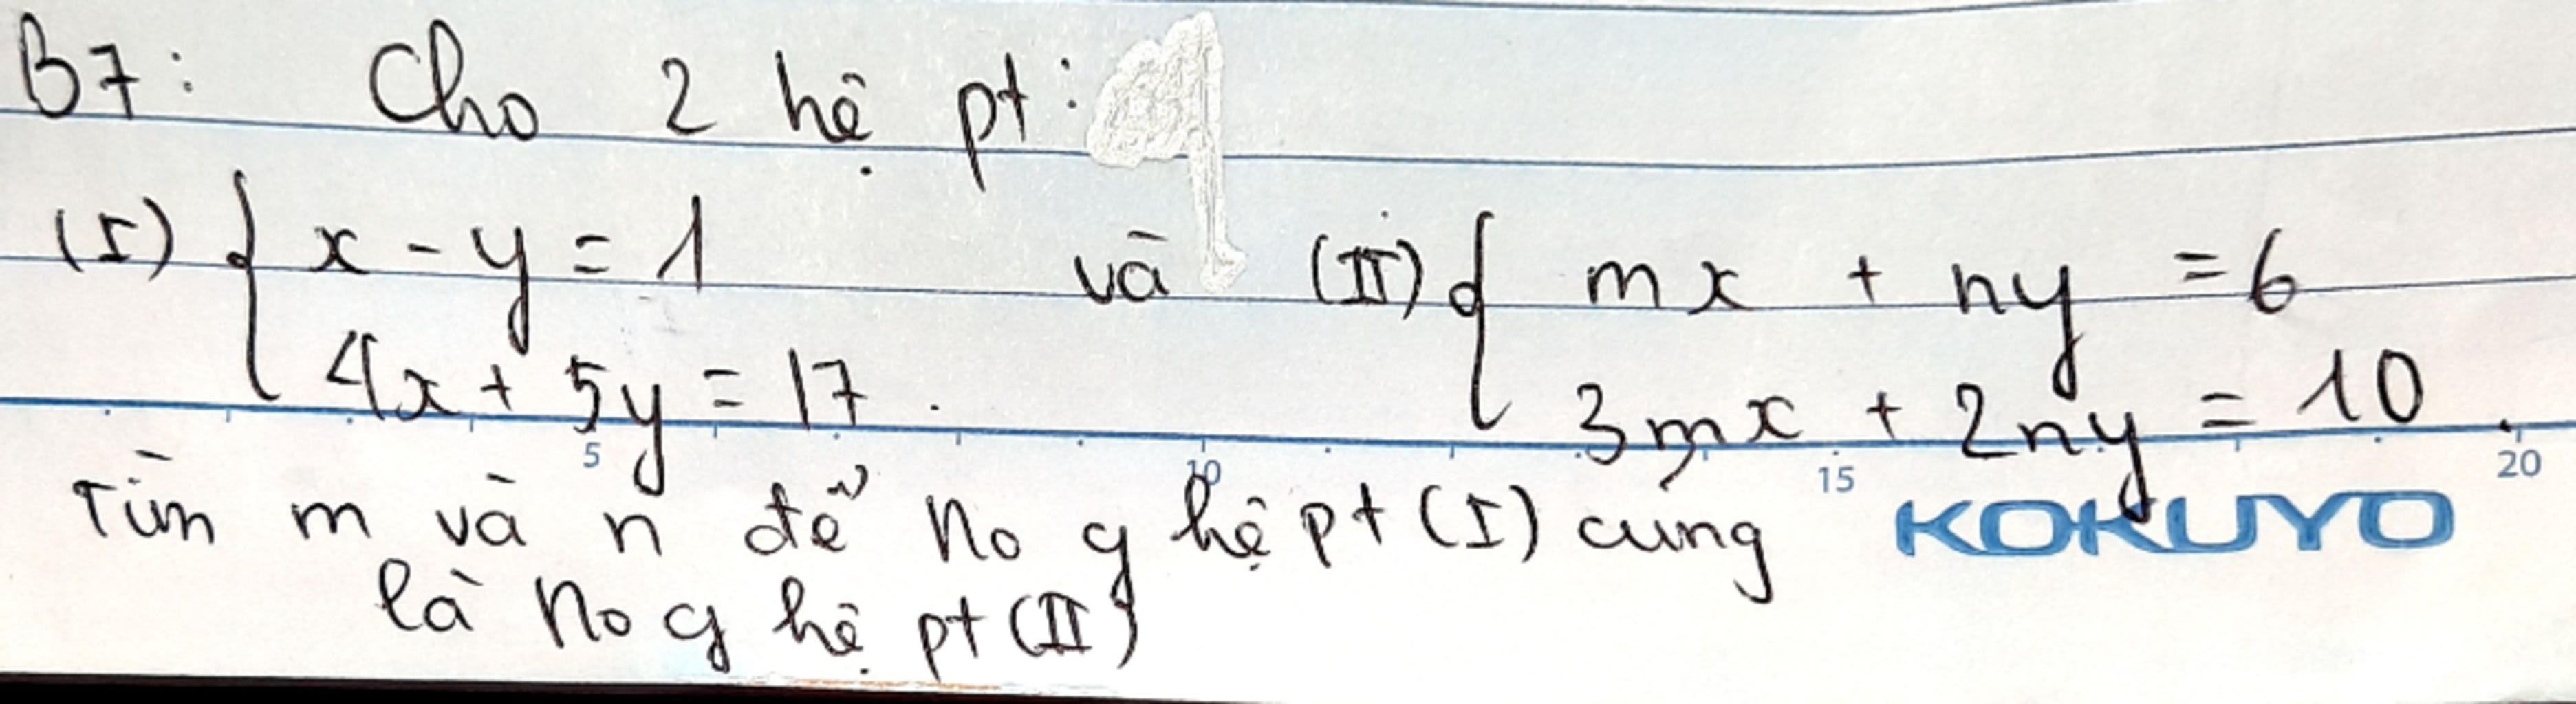 B7: Cho 2 hệ pt:
(I) { x - y = 1 và (II) { mx + ny = 6
4x + 5y = 17. 3mx + 2ny = 10.
5 10 15 20
Tìm m và n để no g hệ pt (I) cũng KOKUYO
là no g hệ pt (II)